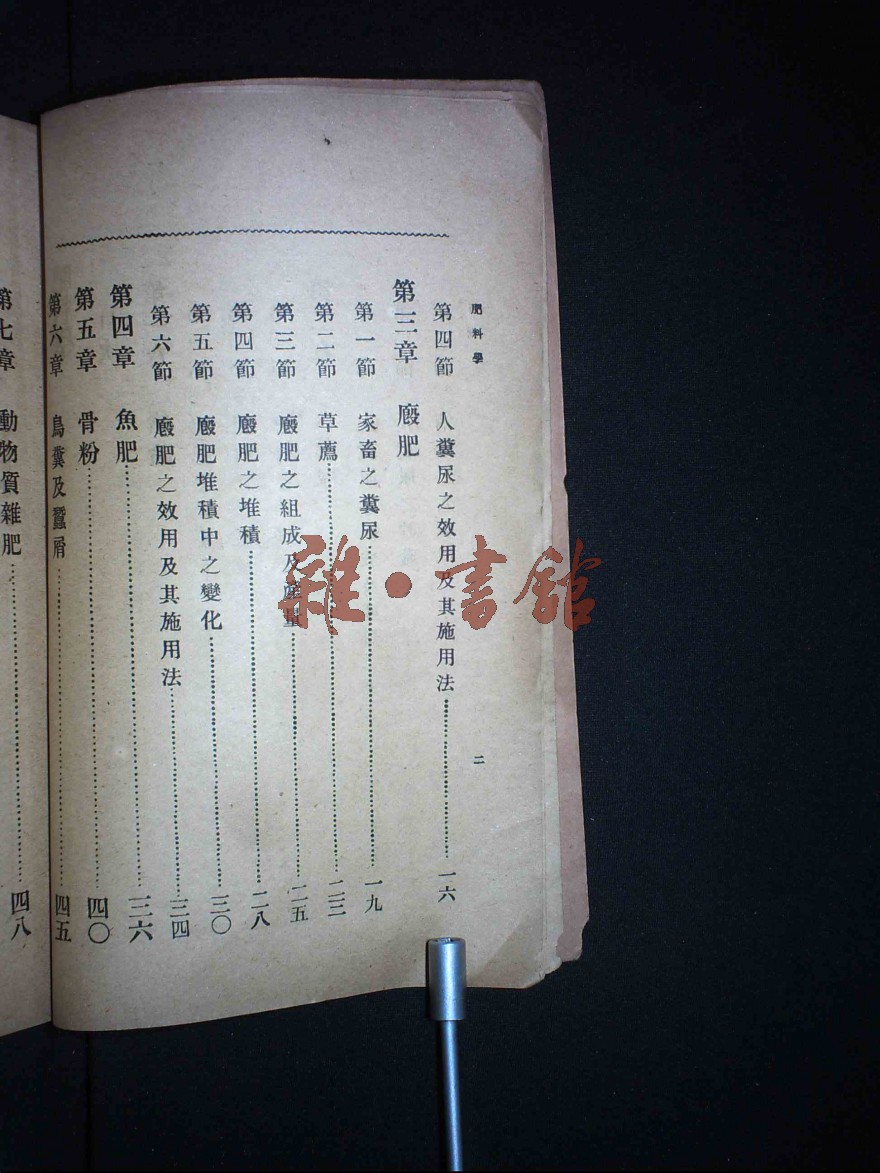 肥料學
二
第四節 人糞尿之效用及其施用法 一六
第三章 廏肥
第一節 家畜之糞尿 一九
第二節 草薦 二三
第三節 廏肥之組成及產量 二五
第四節 廏肥之堆積 二八
第五節 廏肥堆積中之變化 三〇
第六節 廏肥之效用及其施用法 三四
第四章 魚肥 三六
第五章 骨粉 四〇
第六章 鳥糞及蠶屑 四五
第七章 動物質雜肥 四八
雜·書館